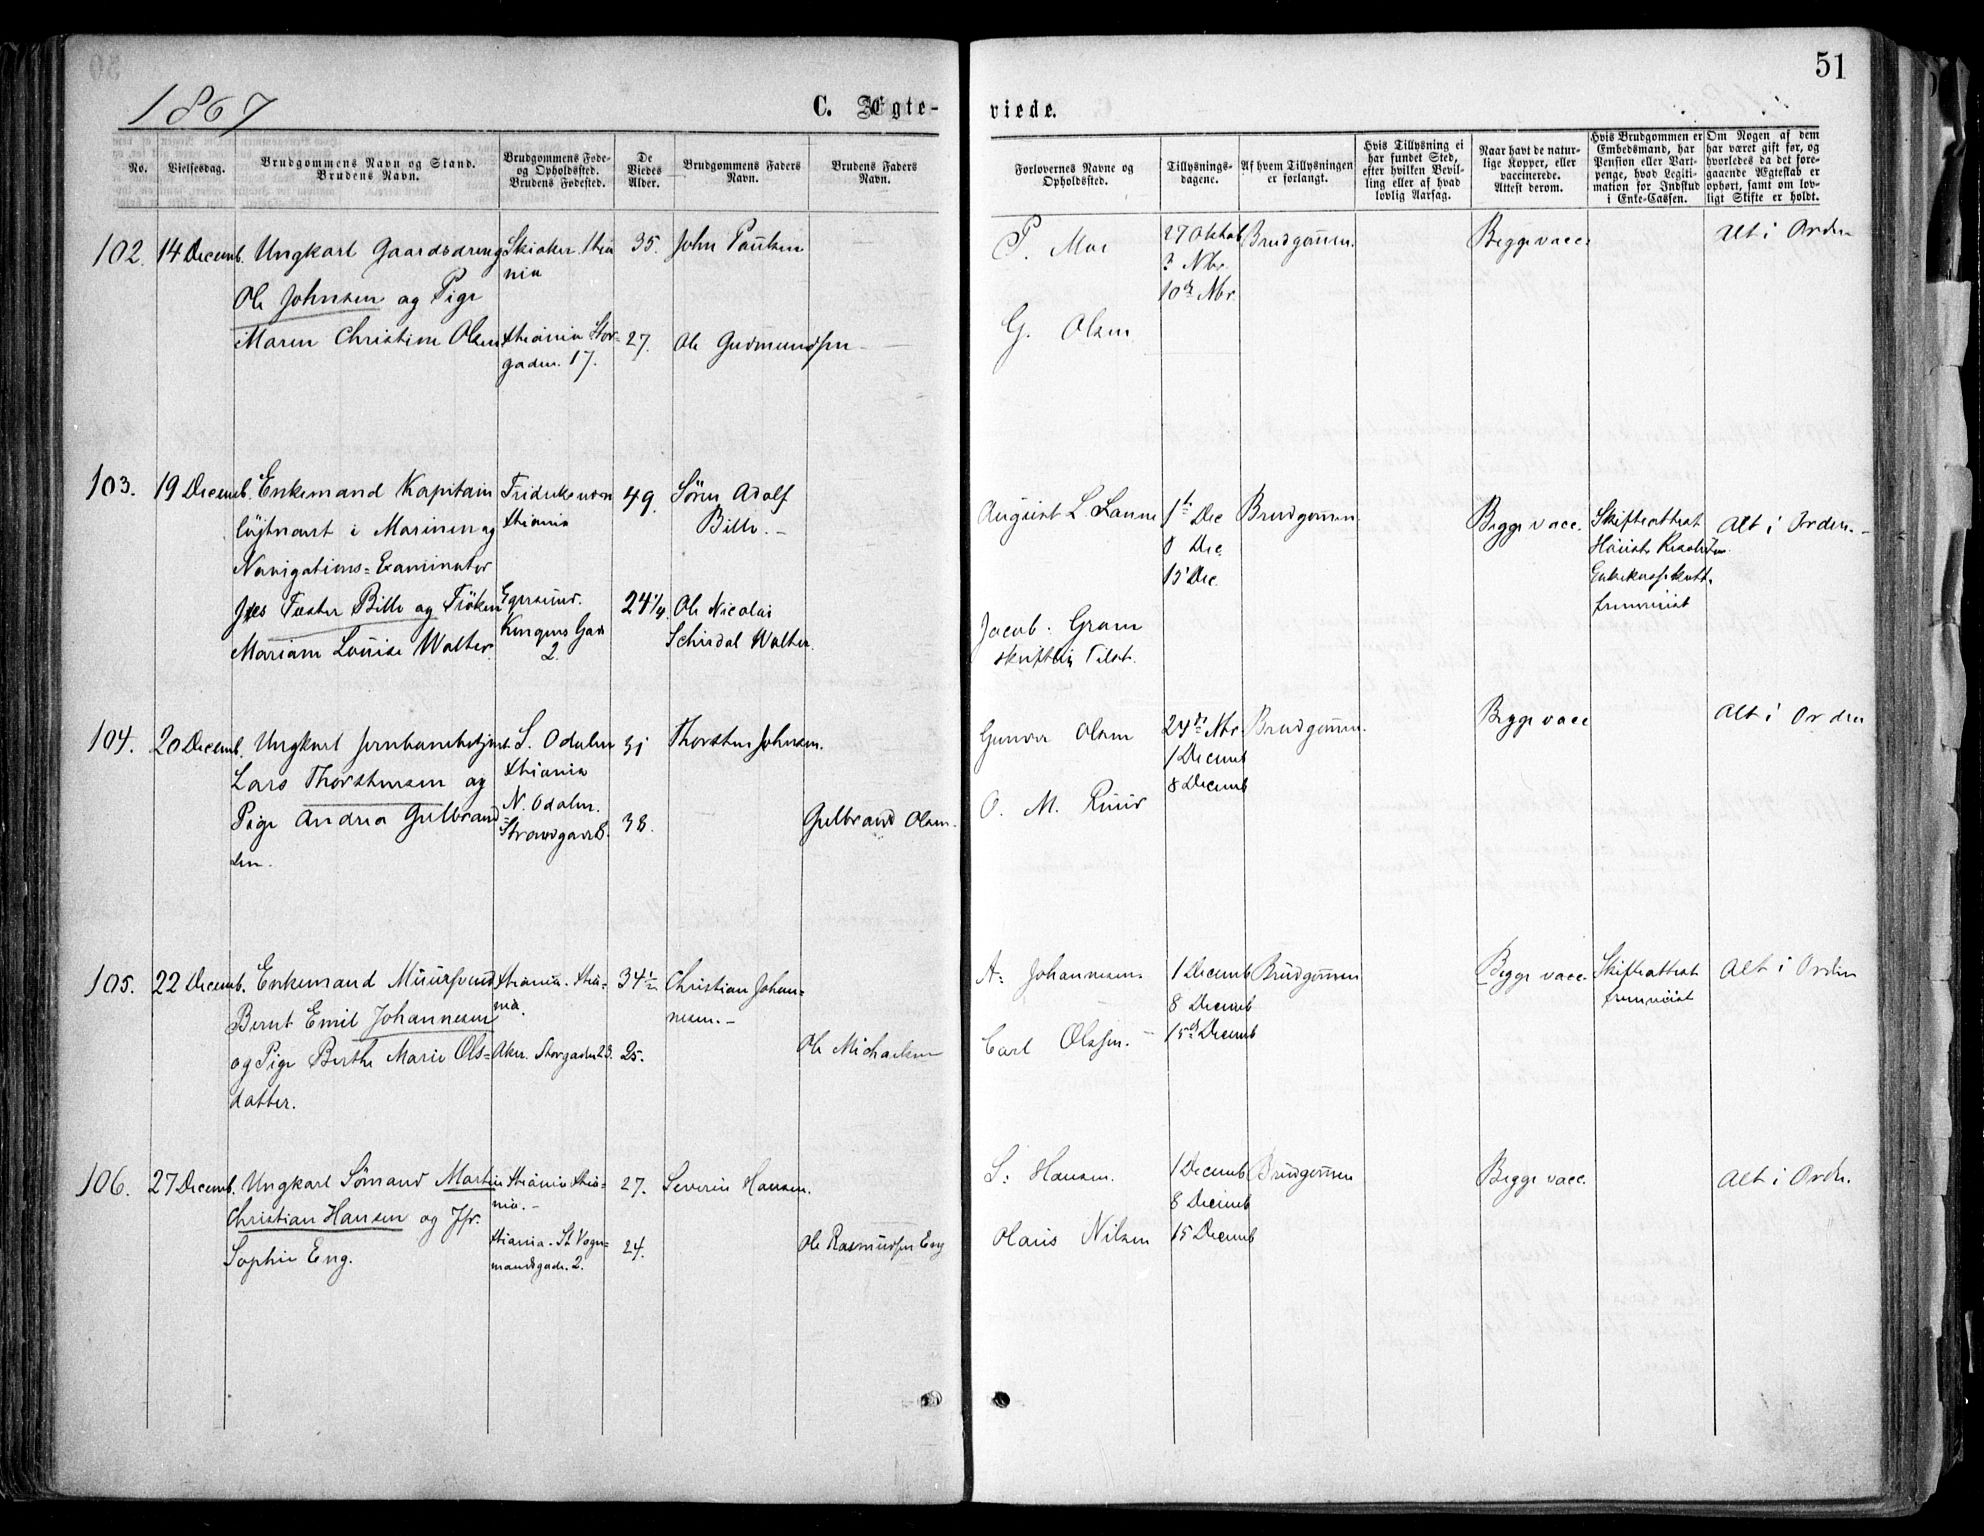 51
1867
C. Ægte-
viede.
No.
Vielsesdag.
Brudgommens Navn og Stand.
Brudens Navn.
Brudgommens Føde-
og Opholdssted.
Brudens Fødested.
De
Viedes
Alder.
Brudgommens Faders
Navn.
Brudens Faders
Navn.
Forlovernes Navne og
Opholdssted.
Tillysnings-
dagene.
Af hvem Tillysningen
er forlangt.
Hvis Tillysning ei
har fundet Sted,
efter hvilken Bevil-
ling eller af hvad
lovlig Aarsag.
Naar havt de natur-
lige Kopper, eller
vaccinerede.
Attest derom.
Hvis Brudgommen er
Embedsmand, har
Pension eller Vart-
penge, hvad Legiti-
mation for Indskud
i Enke-Cassen.
Om Nogen af dem
har været gift før, og
hvorledes da det fore-
gaaende Ægteskab er
ophørt, samt om lov-
ligt Skifte er holdt.
102. 14 Decemb. Ungkarl Gaardsdreng
Ole Johnsen og Pige
Maren Christine Olsen
Skiaker. Xtia
nia
Xtiania Stor-
gaden. 17.
35.
27.
John Paulsen
Ole Gudmundsen
P. Moe
G. Olsen
27 Oktob
3 Nbr.
10de Nbr.
Brudgommen.
Begge vacc.
Alt i Orden
103. 19 Decemb. Enkemand Kapitain
løjtnant i Marinen og
Navigations-Examinator
Jves Foster Bille og Frøken
Mariane Louise Walter.
Fridriksværn
Xtiania
Egersund.
Kongens Gad
2.
49.
24 1/4
Sören Adolf
Bille.-
Ole Nicolai
Schiødal Walter.
August L Lanne
Jacob. Gram
skriftlig Tilst.
1te Dec
8 Dec.
15 Dec.
Brudgommen.
Begge vacc.
Skifteattest
Enkekassekvitt.
fremviist
Alt i Orden.-
104. 20 Decemb. Ungkarl Jernbanebetjent
Lars Thorstensen og
Pige Andrea Gulbrand
sen.
S. Odalen
Xtiania
N. Odalen.
Strandgad 8.
31
38.
Thorsten Johnsen.
Gulbrand Olsen.
Gunder Olsen
O. M. Ruud
24de Nbr.
1 Decemb
8 Decemb
Brudgommen.
Begge vacc
Alt i Orden
105. 22 Decemb. Enkemand Muursvend
Bernt Emil Johannesen
og Pige Berthe Marie Ols-
datter.
Xtiania. Xtia-
nia.
Aker. Storgaden 23.
34 1/2
25.
Christian Johan-
nesen.-
Ole Michaelsen
A: Johannesen.
Carl Olssen.-
1 Decemb
8 Decemb
15de Decemb
Brudgommen
Begge vacc.
Skifteattest
fremviist
Alt i Orden
106. 27 Decemb. Ungkarl Sömand Martin
Christian Hansen og Jfr.
Sophie Eng.
Xtiania Xtia-
nia.-
Xtiania. St Vogn-
mandsgade. 2.
27.
24.
Severin Hansen.
Ole Rasmussen Eng
S: Hansen.
Olaus Nilsen
1 Decemb
8 Decemb
15 Decemb
Brudgommen
Begge vacc.
Alt i Orden.